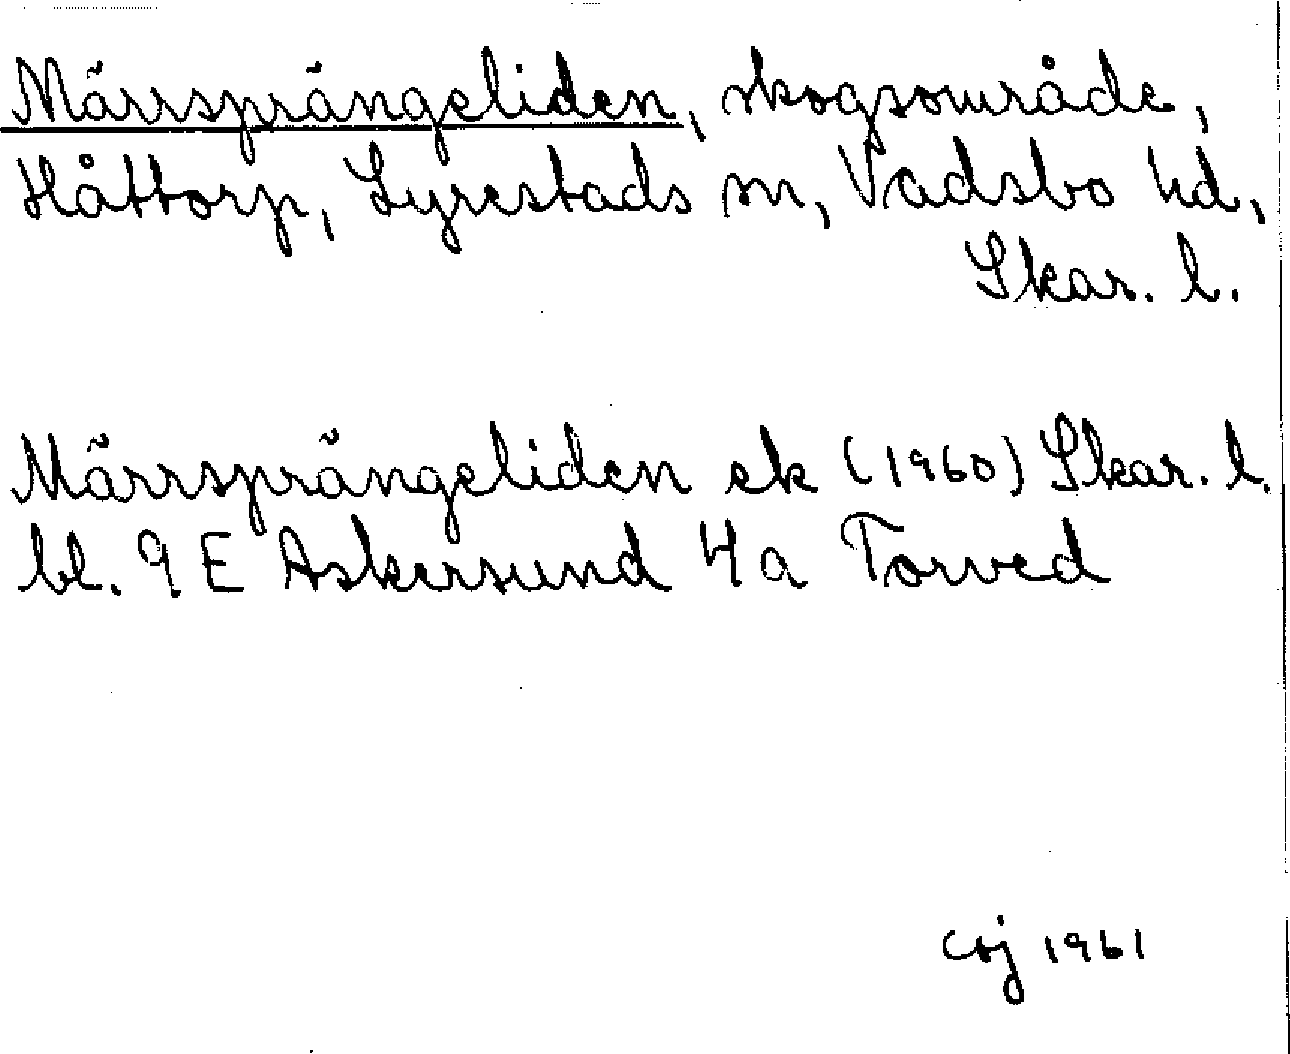 Märrsprängeliden, skogsområde,
Håttorp, Lyrestads sn, Vadsbo hd,
Skar. l.
Märrsprängeliden ek (1960) Skar. l.
bl. 9 E Askersund 4a Torved
1961